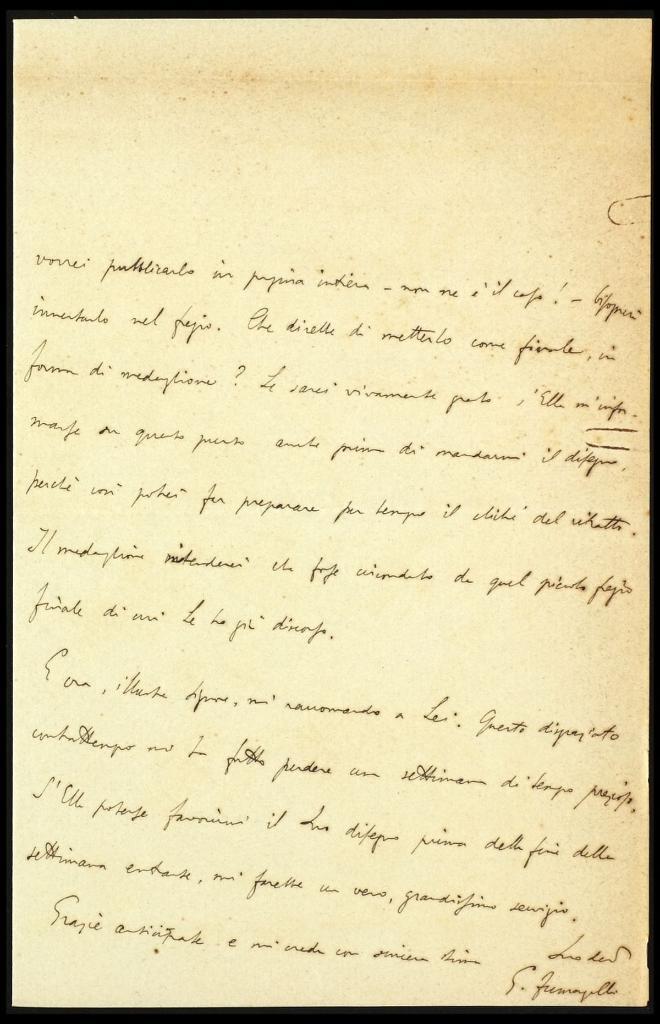 vorrei pubblicarlo in pagina intiera – non ne è il caso! – bisognerà
innestarlo nel fregio. Che direbbe di metterlo come finale, in
forma di medaglione? Le sarei vivamente grato s'Ella m'infor-
masse su questo punto anche prima di mandarmi il disegno,
perchè così potrei far preparare per tempo il cliché del ritratto.
Il medaglione intenderei che fosse circondato da quel piccolo fregio
finale di cui Le ho già discorso.
E ora, illustre Signore, mi raccomando a Lei. Questo disgraziato
contrattempo mi ha fatto perdere una settimana di tempo prezioso.
S'Ella potesse favorirmi il Suo disegno prima della fine della
settimana entrante, mi farebbe un vero, grandissimo servigio.
Grazie anticipate e mi creda con sincera stima
Suo dev
G. Fumagalli